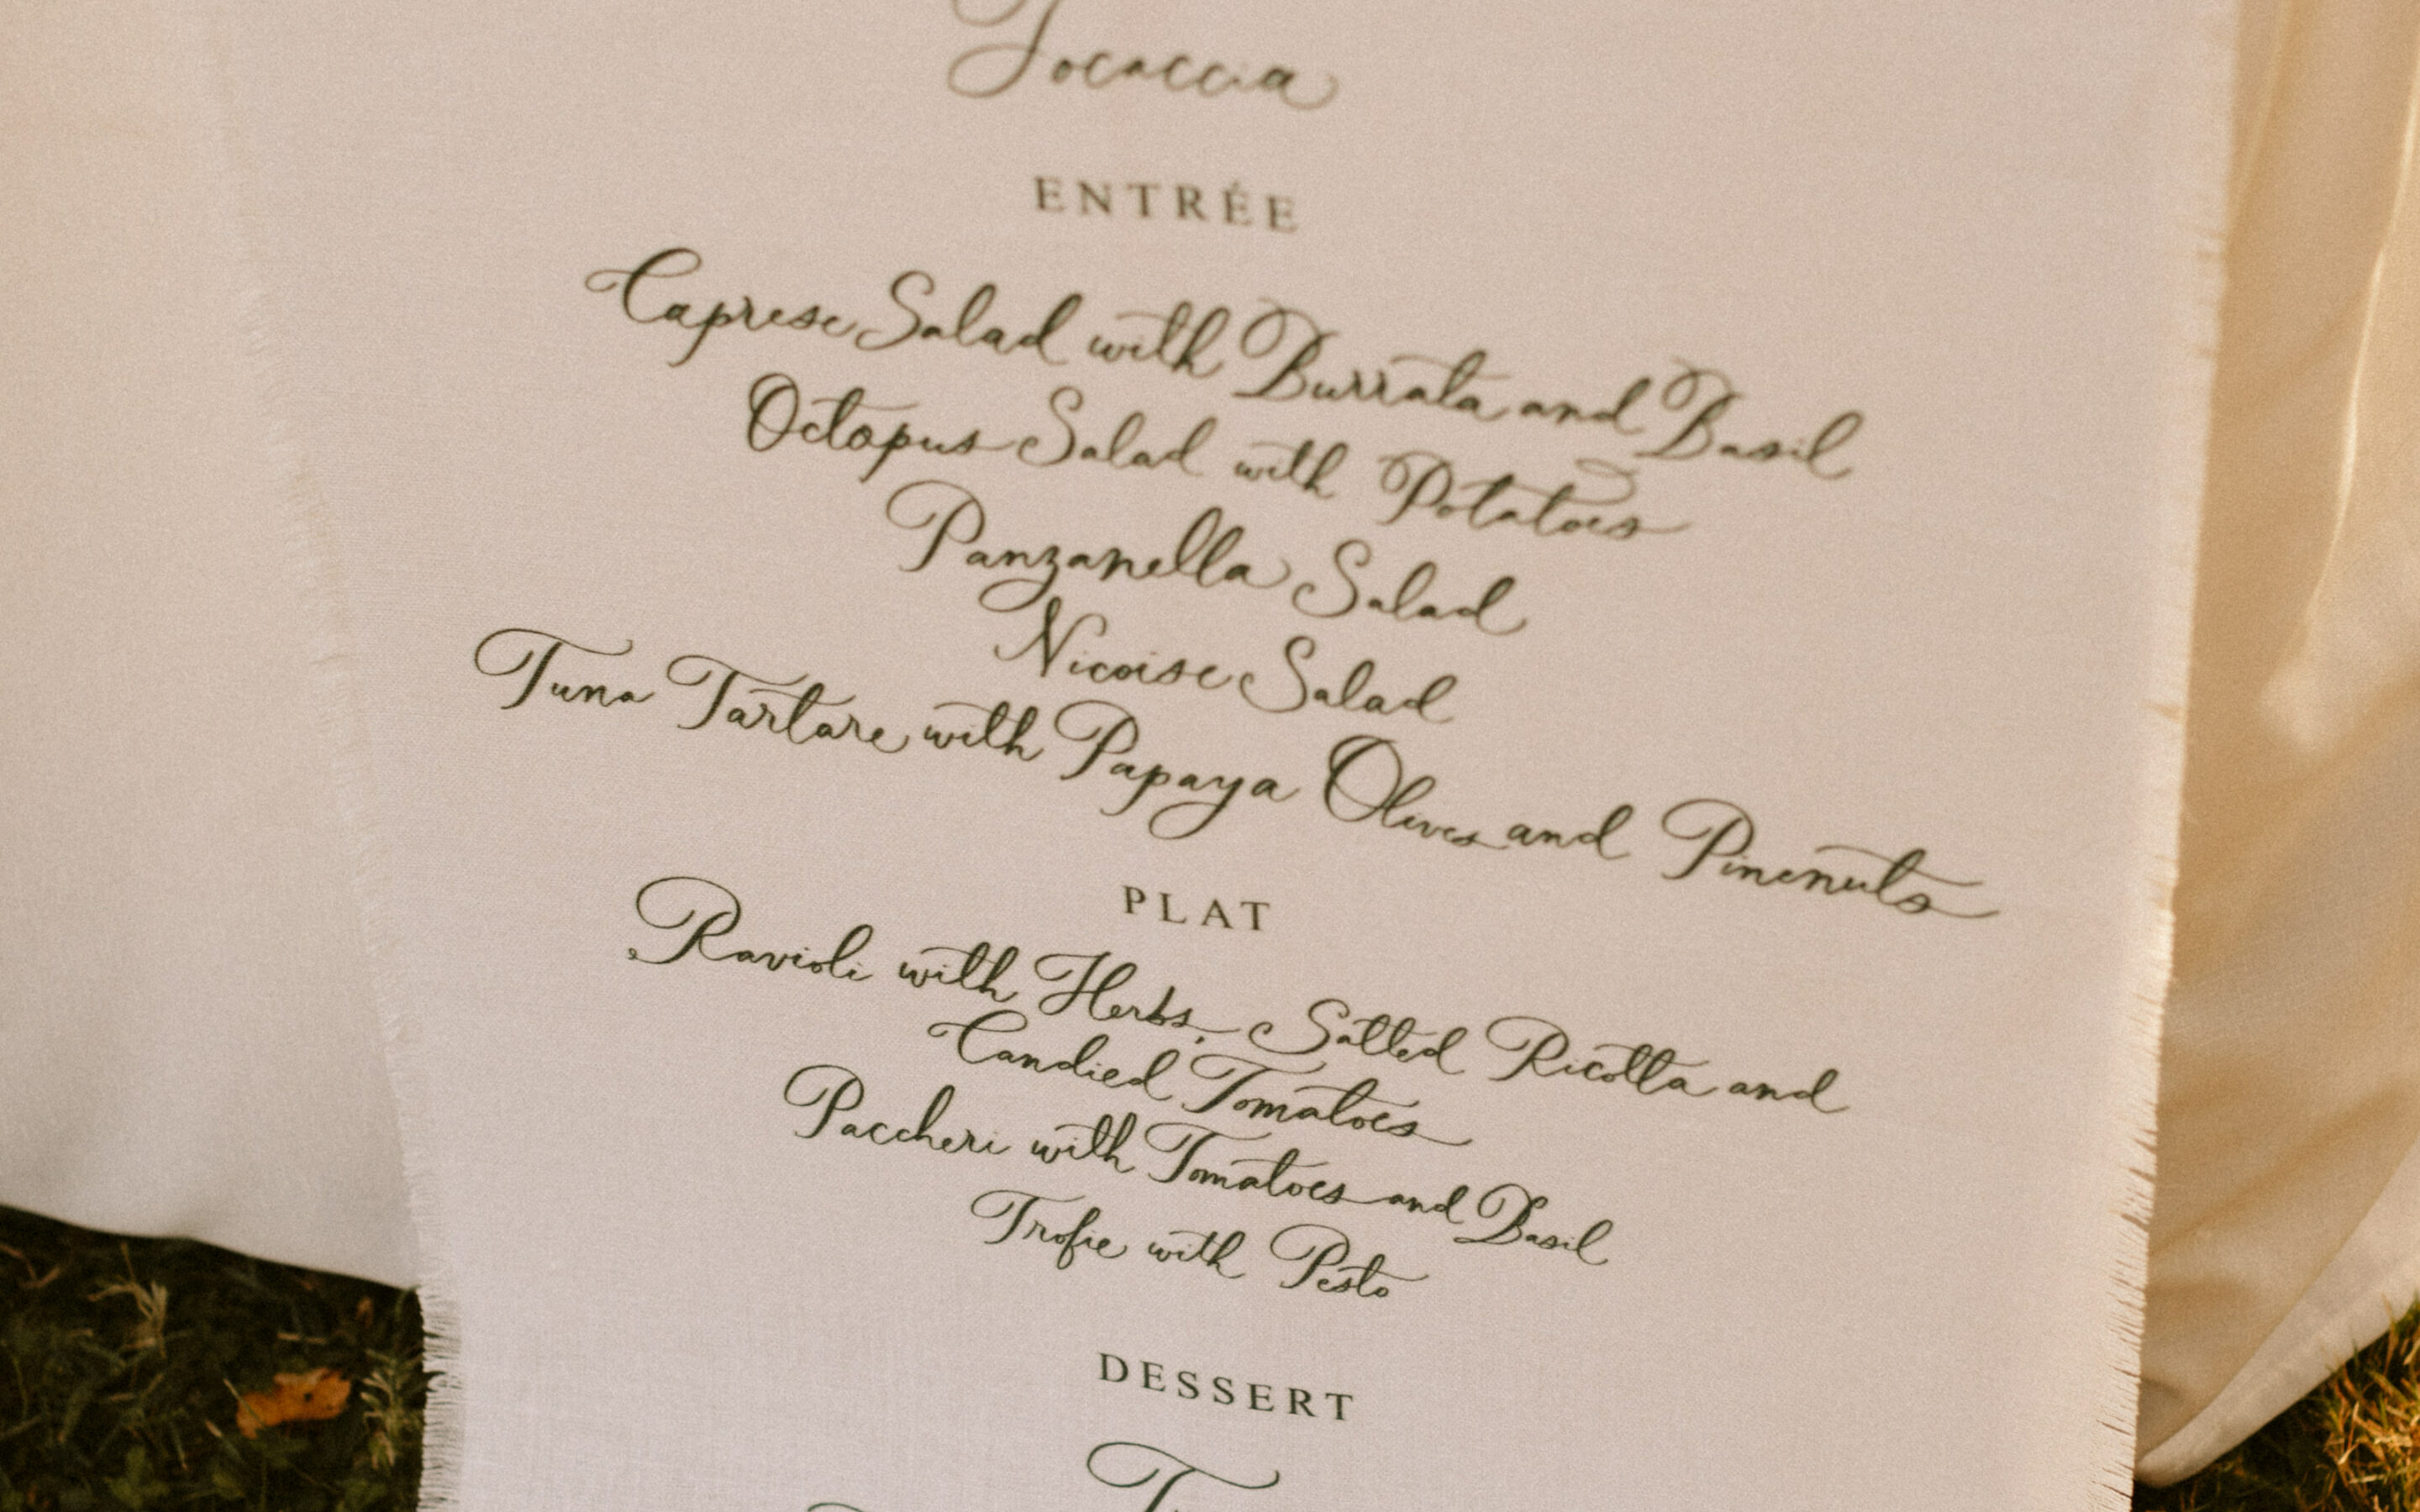 Focaccia
ENTRÉE
Caprese Salad with Burrata and Basil
Octopus Salad with Potatoes
Panzanella Salad
Nicoise Salad
Tuna Tartare with Papaya Olives and Pinenuts
PLAT
Ravioli with Herbs, Salted Ricotta and
Candied Tomatoes
Paccheri with Tomatoes and Basil
Trofie with Pesto
DESSERT